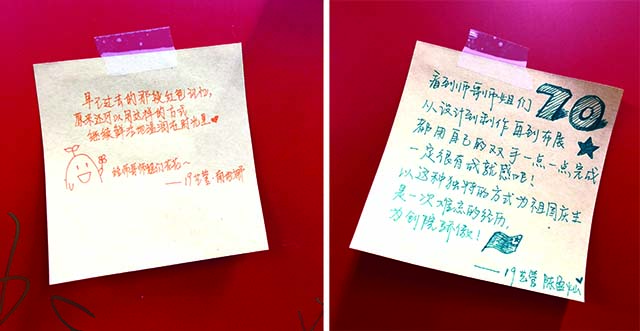 早已过去的那段红色记忆,
原来还可以用这样的方式
继续鲜活地
给师哥师姐们花花~
——19艺管·周
看到师哥师姐们
70
从设计到制作再到布展
都用自己的双手一点一点完成
一定很有成就感吧!
以这种独特的方式为祖国庆生
是一次难忘的经历,
为创院骄傲!
——19艺管 陈盈